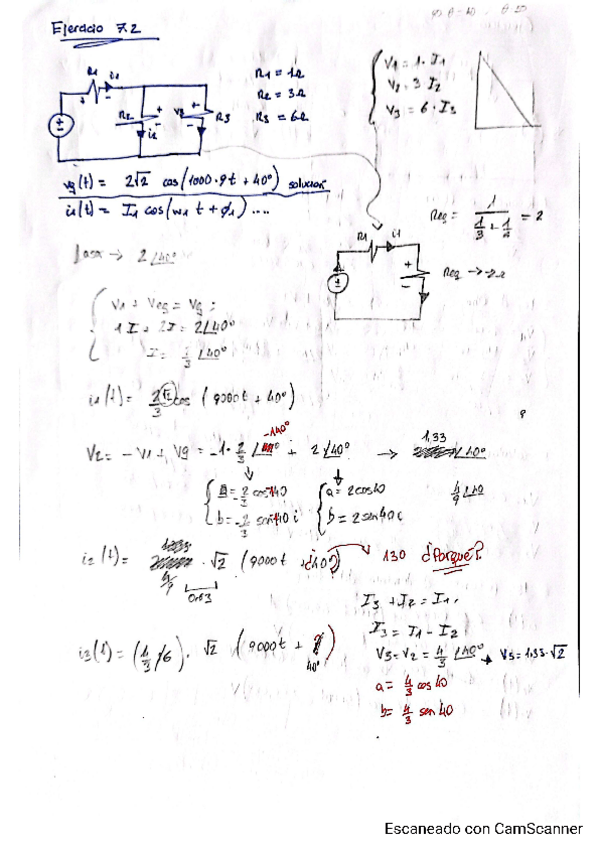 Ejercicio 7.2
R1 i1
R2 i2 V3 R3
R1 = 1Ω
R2 = 3Ω
R3 = 6Ω
V1 = 1 · I1
V2 = 3 I2
V3 = 6 · I3
vg(t) = 2√2 cos(1000·9t + 40°) solucion
i1(t) = I1 cos(w1 t + φ1) ....
Req = 1 / (1/3 + 1/2) = 2
R1 i1
Req → 2Ω
→ 2∠40°
V1 + Veq = Vg ;
1I + 2I = 2∠40°
I = 2/3 ∠40°
i1(t) = 2√2/3 cos (9000t + 40°)
-140°
V2 = -V1 + Vg = -1 · 2/3 + 2∠40° → 1,33 ∠40°
a = 2cos40
b = 2sen40i
4/9 ∠40
i2(t) = · √2 (9000t + 40°) 130 ¿Porqué?
0,63
I3 + I2 = I1.
I3 = I1 - I2
i3(t) = (4/3 /6) · √2 (9000t + 40°)
V3 = V2 = 4/3 ∠40° → V3 = 1,33·√2
a = 4/3 cos 40
b = 4/3 sen 40
Escaneado con CamScanner